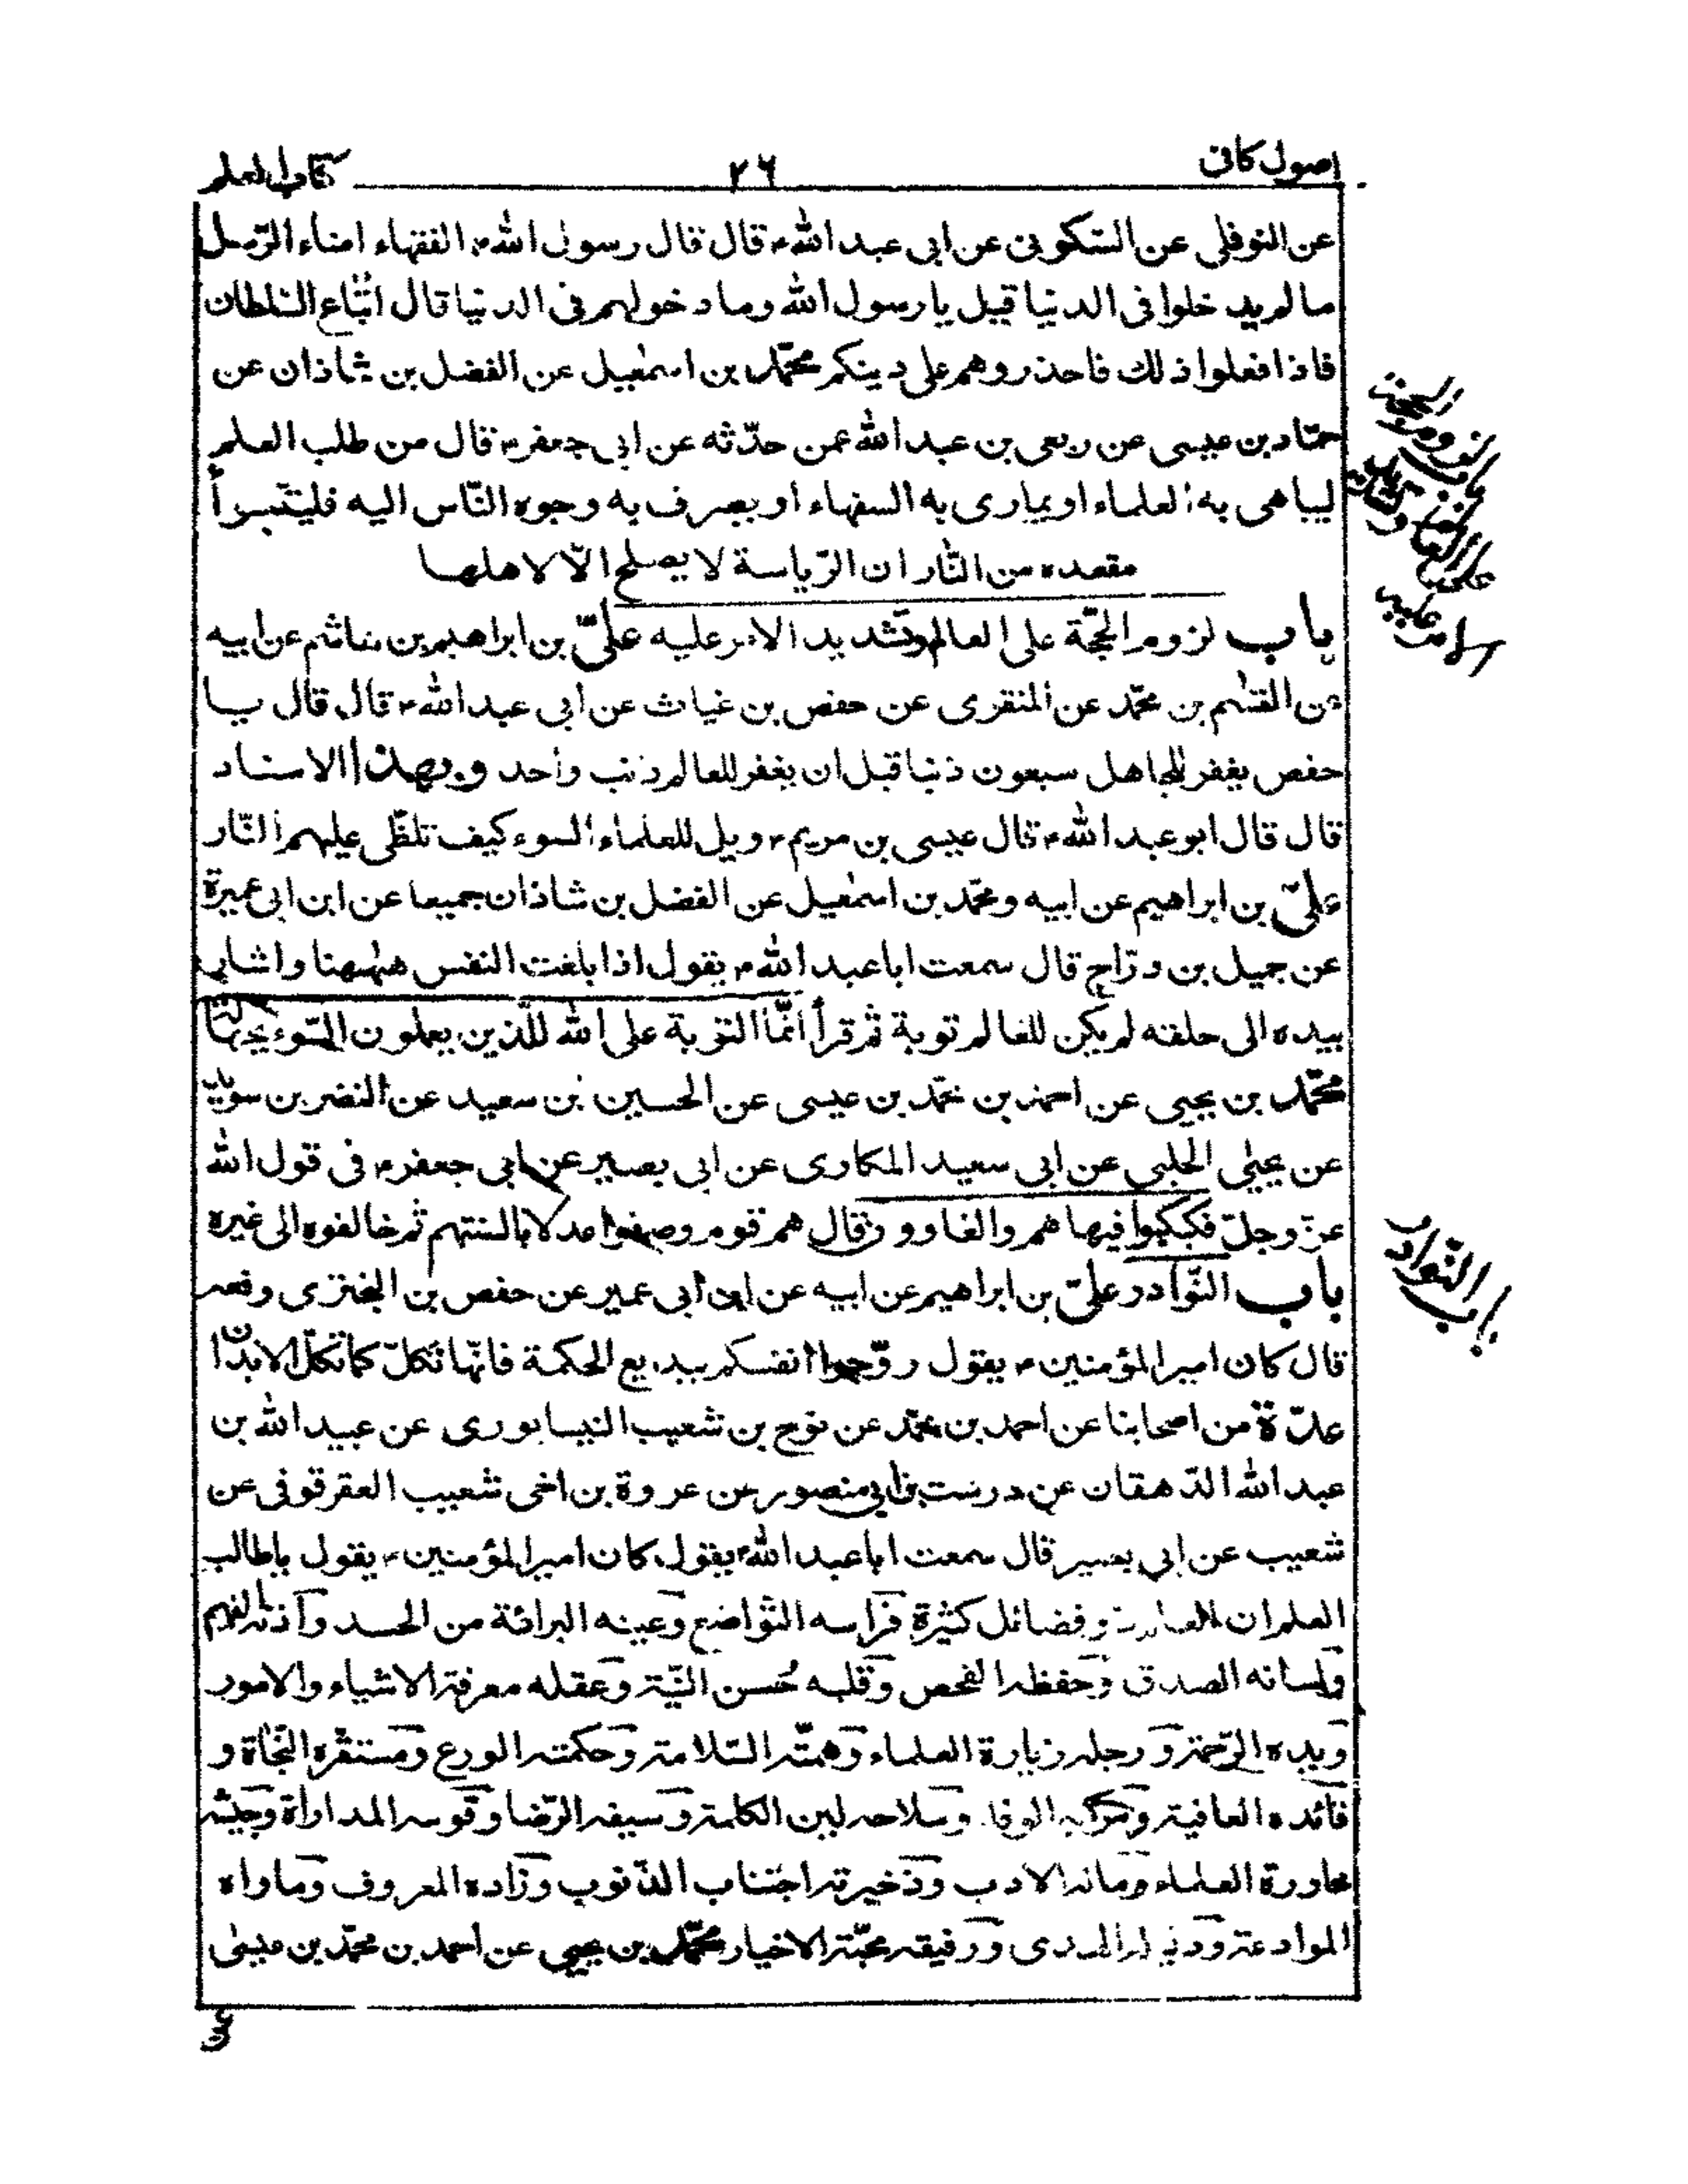 اصول كافى
٢٦
كتاب العلم
عن النوفلى عن السّكونى عن ابى عبد الله ع قال قال رسول الله ص الفقهاء امناء الرّسل
ما لم يدخلوا فى الدنيا قيل يا رسول الله وما دخولهم فى الدنيا قال اتّباع السّلطان
فاذا فعلوا ذلك فاحذروهم على دينكم محمّد بن اسمٰعيل عن الفضل بن شاذان عن
حمّاد بن عيسى عن ربعى بن عبد الله عمن حدّثه عن ابى جعفر ع قال من طلب العلم
ليباهى به العلماء او يمارى به السفهاء او يصرف به وجوه النّاس اليه فليتبوأ
مقعده من النّار ان الرّياسة لا يصلح الّا لاهلها
باب لزوم الحجّة على العالم وتشديد الامر عليه علىّ بن ابراهيم بن هاشم عن ابيه
عن القٰسم بن محمّد عن المنقرى عن حفص بن غياث عن ابى عبد الله ع قال قال يا
حفص يغفر للجاهل سبعون ذنبا قبل ان يغفر للعالم ذنب واحد وبهذا الاسناد
قال قال ابو عبد الله ع قال عيسى بن مريم ع ويل للعلماء السوء كيف تلظّى عليهم النّار
علىّ بن ابراهيم عن ابيه ومحمّد بن اسمٰعيل عن الفضل بن شاذان جميعا عن ابن ابى عميرة
عن جميل بن درّاج قال سمعت ابا عبد الله ع يقول اذا بلغت النفس هٰهنا واشار
بيده الى حلقه لم يكن للعالم توبة ثم قرأ انّما التوبة على الله للّذين يعملون السّوء بجهالة
محمّد بن يحيى عن احمد بن محمّد بن عيسى عن الحسين بن سعيد عن النضر بن سويد
عن يحيٰى الحلبى عن ابى سعيد المكارى عن ابى بصير عن ابى جعفر ع فى قول الله
عزّ وجلّ فكبكبوا فيها هم والغاوون قال هم قوم وصفوا عدلا بالسنتهم ثم خالفوه الى غيره
باب النّوادر علىّ بن ابراهيم عن ابيه عن ابن ابى عمير عن حفص بن البخترى رفعه
قال كان امير المؤمنين ع يقول روّحوا انفسكم ببديع الحكمة فانّها تكلّ كما تكلّ الابدان
عدّة من اصحابنا عن احمد بن محمّد عن نوح بن شعيب النيسابورى عن عبيد الله بن
عبد الله الدّهقان عن درست بن ابى منصور عن عروة بن اخى شعيب العقرقوفى عن
شعيب عن ابى بصير قال سمعت ابا عبد الله ع يقول كان امير المؤمنين ع يقول يا طالب
العلم ان العلم ذو فضائل كثيرة فرأسه التّواضع وعينه البرائة من الحسد واذنه الفهم
ولسانه الصدق وحفظه الفحص وقلبه حُسن النيّة وعقله معرفة الاشياء والامور
ويده الرّحمة ورجله زيارة العلماء وهمّته السّلامة وحكمته الورع ومستقرّه النّجاة و
قائده العافية ومركبه الوفا وسلاحه لين الكلمة وسيفه الرّضا وقوسه المداراة وجيشه
محاورة العلماء وماله الادب وذخيرته اجتناب الذّنوب وزاده المعروف وماواه
الموادعة ودليله الهدى ورفيقه محبّة الاخيار محمّد بن يحيى عن احمد بن محمّد بن عيسٰى
باب النّوادر